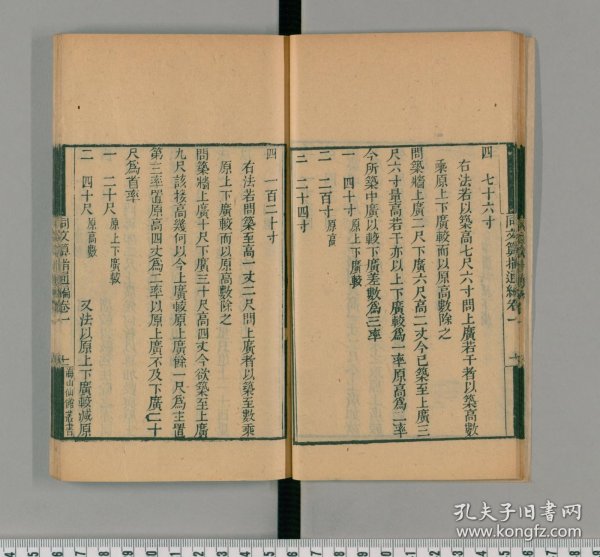 同文算指通編卷一
四 七十六寸
右法若以築高七尺六寸問上廣若干者以築高數
乘原上下廣較而以原高數除之
問築牆上廣二尺下廣六尺高二丈今已築至上廣三
尺六寸量高若干亦以上下廣較為一率原高為二率
今所築中廣以較下廣差數為三率
一 四十寸 原上下廣較
二 二百寸 原高
三 二十四寸
四 一百二十寸
右法若問築至高一丈二尺問上廣者以築至數乘
原上下廣較而以原高數除之
問築牆上廣十尺下廣三十尺高四丈今欲築至上廣
九尺該接高幾何以今上廣較原上廣餘一尺為主置
第三率置原高四丈為二率以原上廣不及下廣二十
尺為首率
一 二十尺 原上下廣較
二 四十尺 原高數 又法以原上下廣較減原
同文算指通編卷一 十 海山仙館叢書
孔夫子旧书网
www.kongfz.com